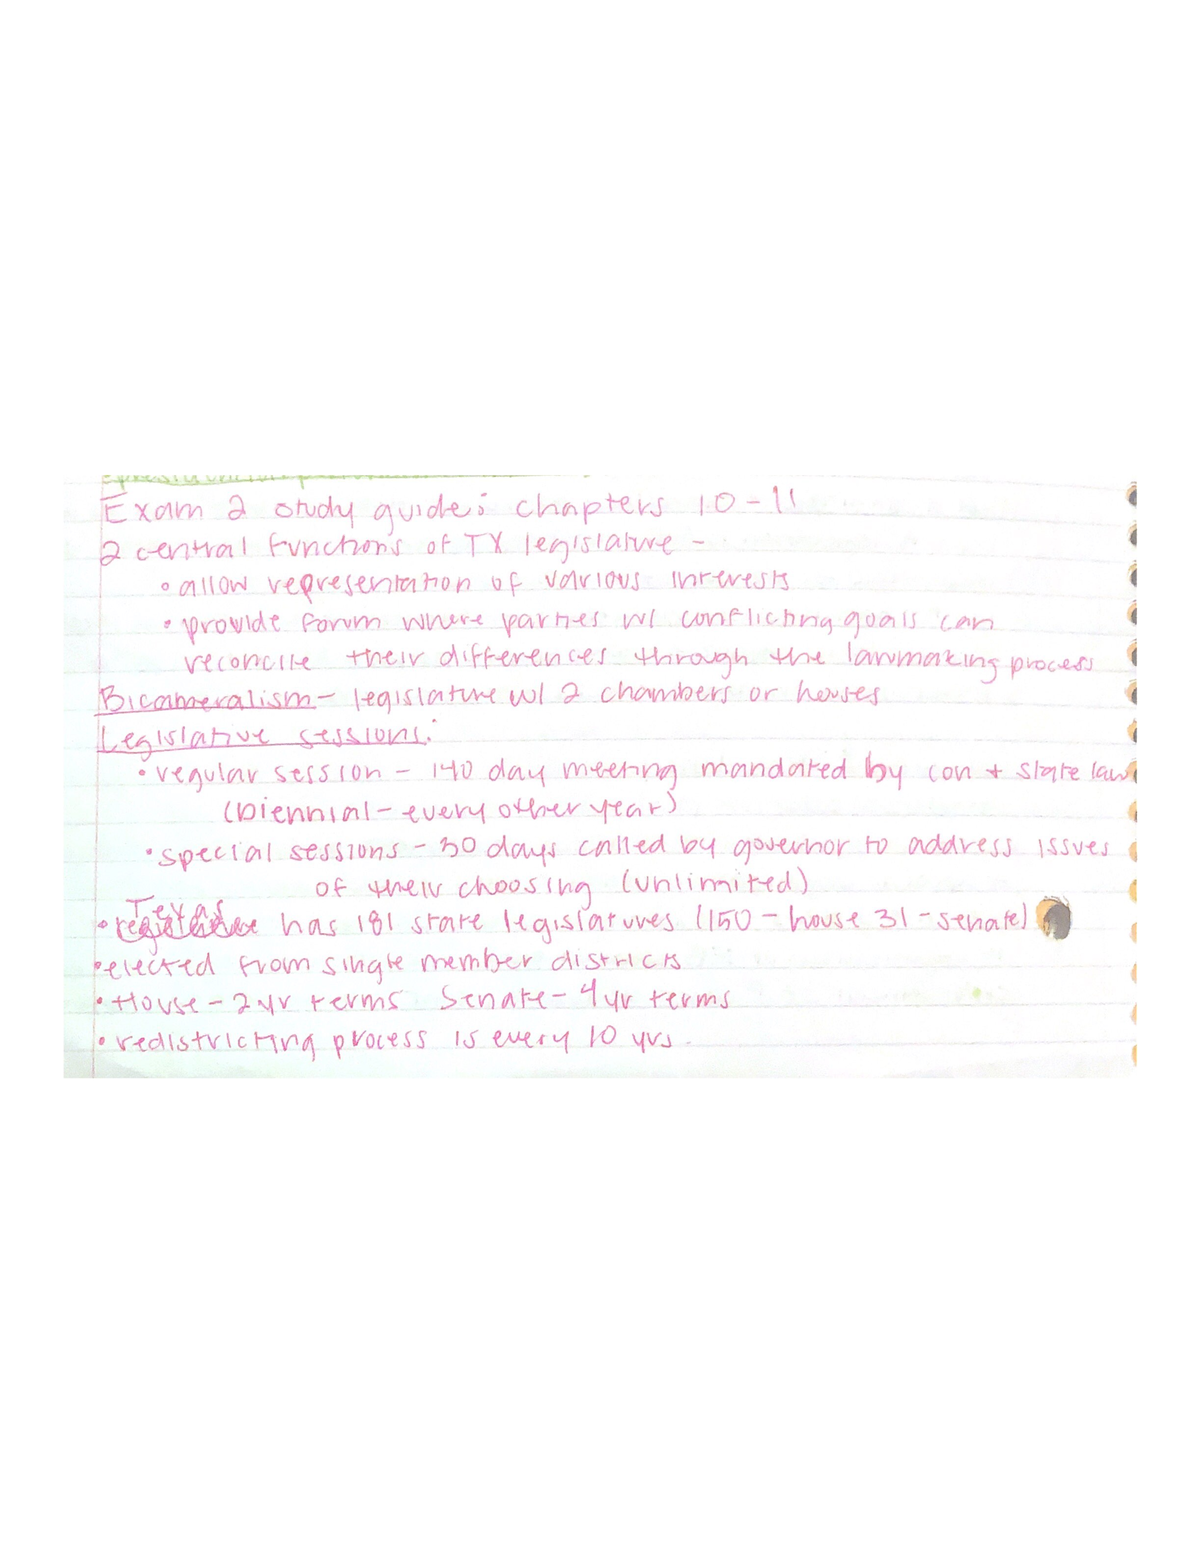 Exam 2 study guide: chapters 10-11
2 central functions of TX legislature -
• allow representation of various interests
• provide forum where parties w/ conflicting goals can
reconcile their differences through the lawmaking process
Bicameralism - legislature w/ 2 chambers or houses
Legislative sessions:
• regular session - 140 day meeting mandated by con + state law
(biennial - every other year)
• special sessions - 30 days called by governor to address issues
of their choosing (unlimited)
• Texas has 181 state legislatures (150 - house 31 - senate)
• elected from single member districts
• House - 2 yr terms Senate - 4 yr terms
• redistricting process is every 10 yrs.